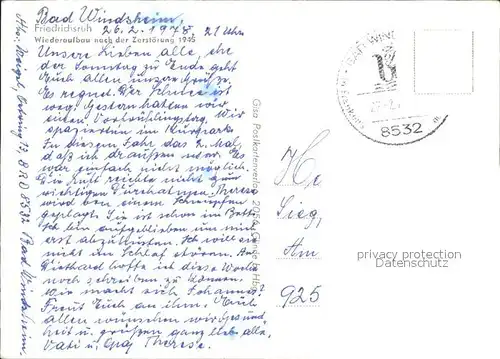 Bad Windsheim,
Friedrichsruh 26.2.1978, 21 Uhr
Wiederaufbau nach der Zerstörung 1945
Unsere Lieben alle, ehe
der Sonntag zu Ende geht
Euch allen unsere Grüße.
Es regnet. Der Schnee ist
weg. Gestern hatten wir
einen Vorfrühlingstag. Wir
spazierten im Kurpark.
In diesem Jahr das 2. Mal,
daß ich draußen war. Es
war einfach nicht möglich.
Die Luft reichte nicht zum
richtigen Durchatmen. Therese
wird von einem Schnupfen
geplagt. Sie ist schon im Bett.
Ich bin aufgeblieben um mich
erst abzuhusten. Ich will sie
nicht im Schlaf stören. An
Diethard hoffe ich diese Woche
noch schreiben zu können.
Wie macht sich Johannes?
Freut Euch an ihm. Euch
allen wünschen wir Gesund-
heit u. grüßen ganz lieb alle,
Vati u. Therese.
8532 Bad Windsheim.
Gisa Postkartenverlag 2050
BAD WIN
8532
He
Sieg,
Am
925
privacy protection
Datenschutz